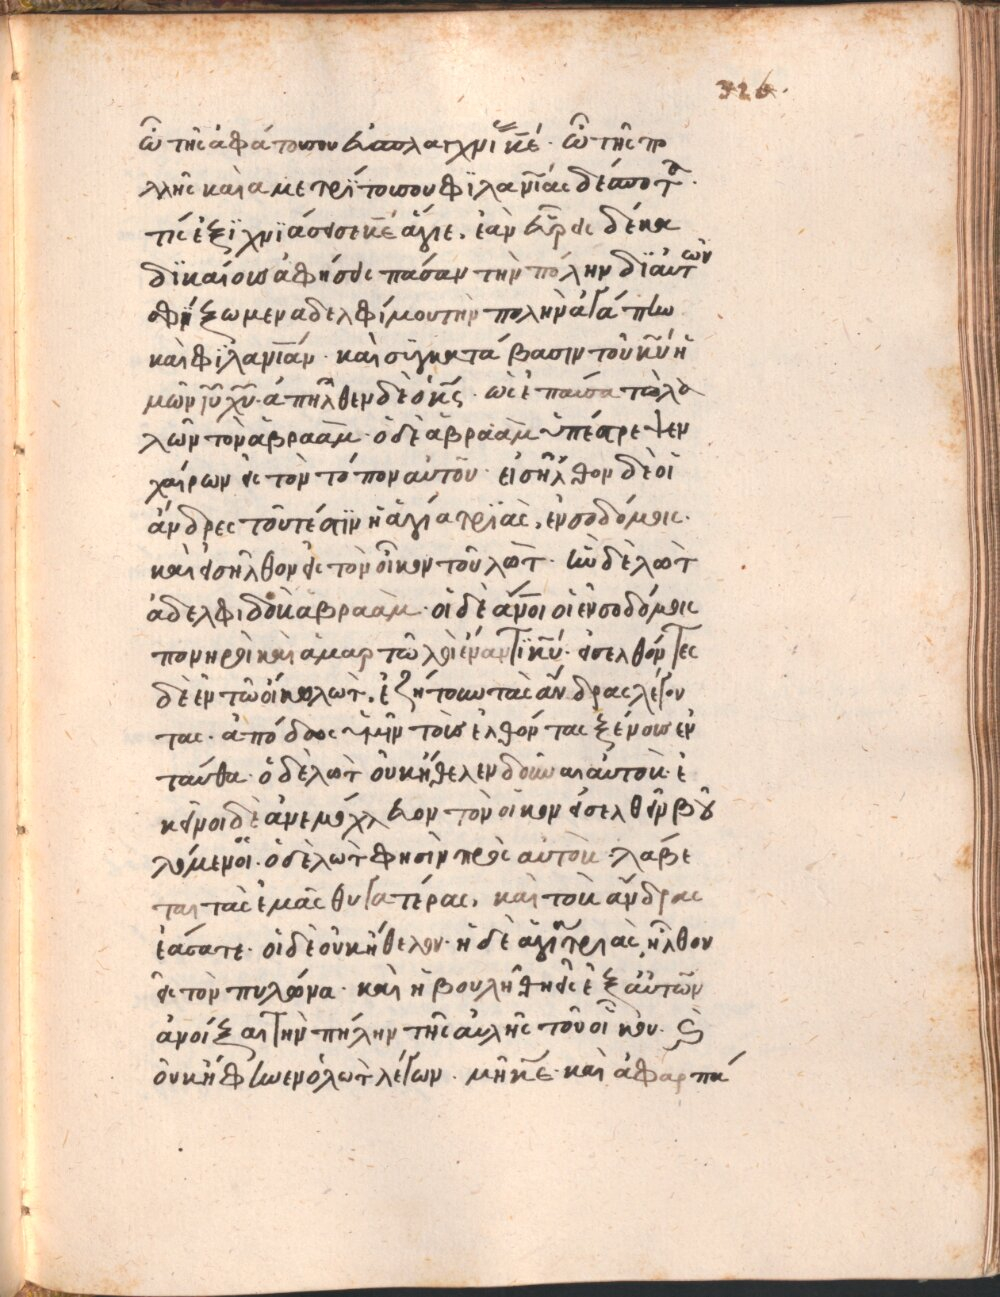 326.
ὢ τῆς ἀφάτου σου εὐσπλαγχνίας κε̄· ὢ τῆς πο
λλῆς καὶ αμετρΐτου σου φϊλανΐας δέσποτα·
τίς ἐξϊχνϊάσει σε κε̄ ἅγιε, ἐὰν εὕρεις δέκα
δϊκαίους ἀφήσεις πάσαν τὴν πόλην δϊ αὐτῶν
φϊξωμεν αδελφί μου τὴν πολὴν ἀγάπην
καὶ φϊλανΐαν· καὶ σϊγκατάβασιν τοῦ κῡ ἡ
μῶν ιῡ χῡ· ἀπῆλθεν δὲ ὁ κς̄· ὡς ἐπαύσατω λα
λῶν τὸν ἀβραὰμ· ὁ δὲ ἀβραὰμ ὑπέστρεψεν
χαίρων εἰς τὸν τόπον αὐτοῦ· εἰσῆλθον δὲ οἱ
ἄνδρες τοῦτέστϊν ἡ ἁγία τρϊὰς, ἐν σοδόμοις·
καὶ εἰσῆλθον εἰς τὸν οἶκον τοῦ λὼτ· ἦν δὲ λὼτ
ἀδελφιδὸς ἀβραὰμ· οἱ δὲ ἄνοι οἱ ἐν σοδόμοις
πονηροὶ καὶ ἁμαρτωλοὶ ἐναντΐ κῡ· εἰσελθόντες
δὲ ἐν τῶ οἴκω λὼτ, ἐζήτουν τὰς ἄνδρας λέγον
τας· ἀπόδοος ὑμῖν τοὺς ἐλθόντας ξένους ἐν
ταύθα· ὁ δὲ λὼτ οὐκ ἤθελεν δοῦναι αὐτοὺς· ἐ
κεῖνοι δὲ ἀνεμόχλευον τὸν οἶκον εἰσελθεῖν βου
λόμενοι· ὁ δὲ λὼτ φησὶν πρὸς αὐτοὺς· λάβε
ται τὰς ἐμὰς θυγατέρας, καὶ τοὺς ἄνδρας
ἐάσατε· οἱ δὲ οὐκ ἤθελον· ἡ δὲ ἁγία τρϊὰς, ἦλθον
εἰς τὸν πυλῶνα· καὶ ἠβουλήθη εἷς ἐξ αὐτῶν
ἀνοίξαι τὴν πήλην τῆς αὐλῆς τοῦ οἴκου· καὶ
οὐκ ἤφϊωεν ὁ λὼτ λέγων· μὴ κε̄· καὶ ἀφαρπά